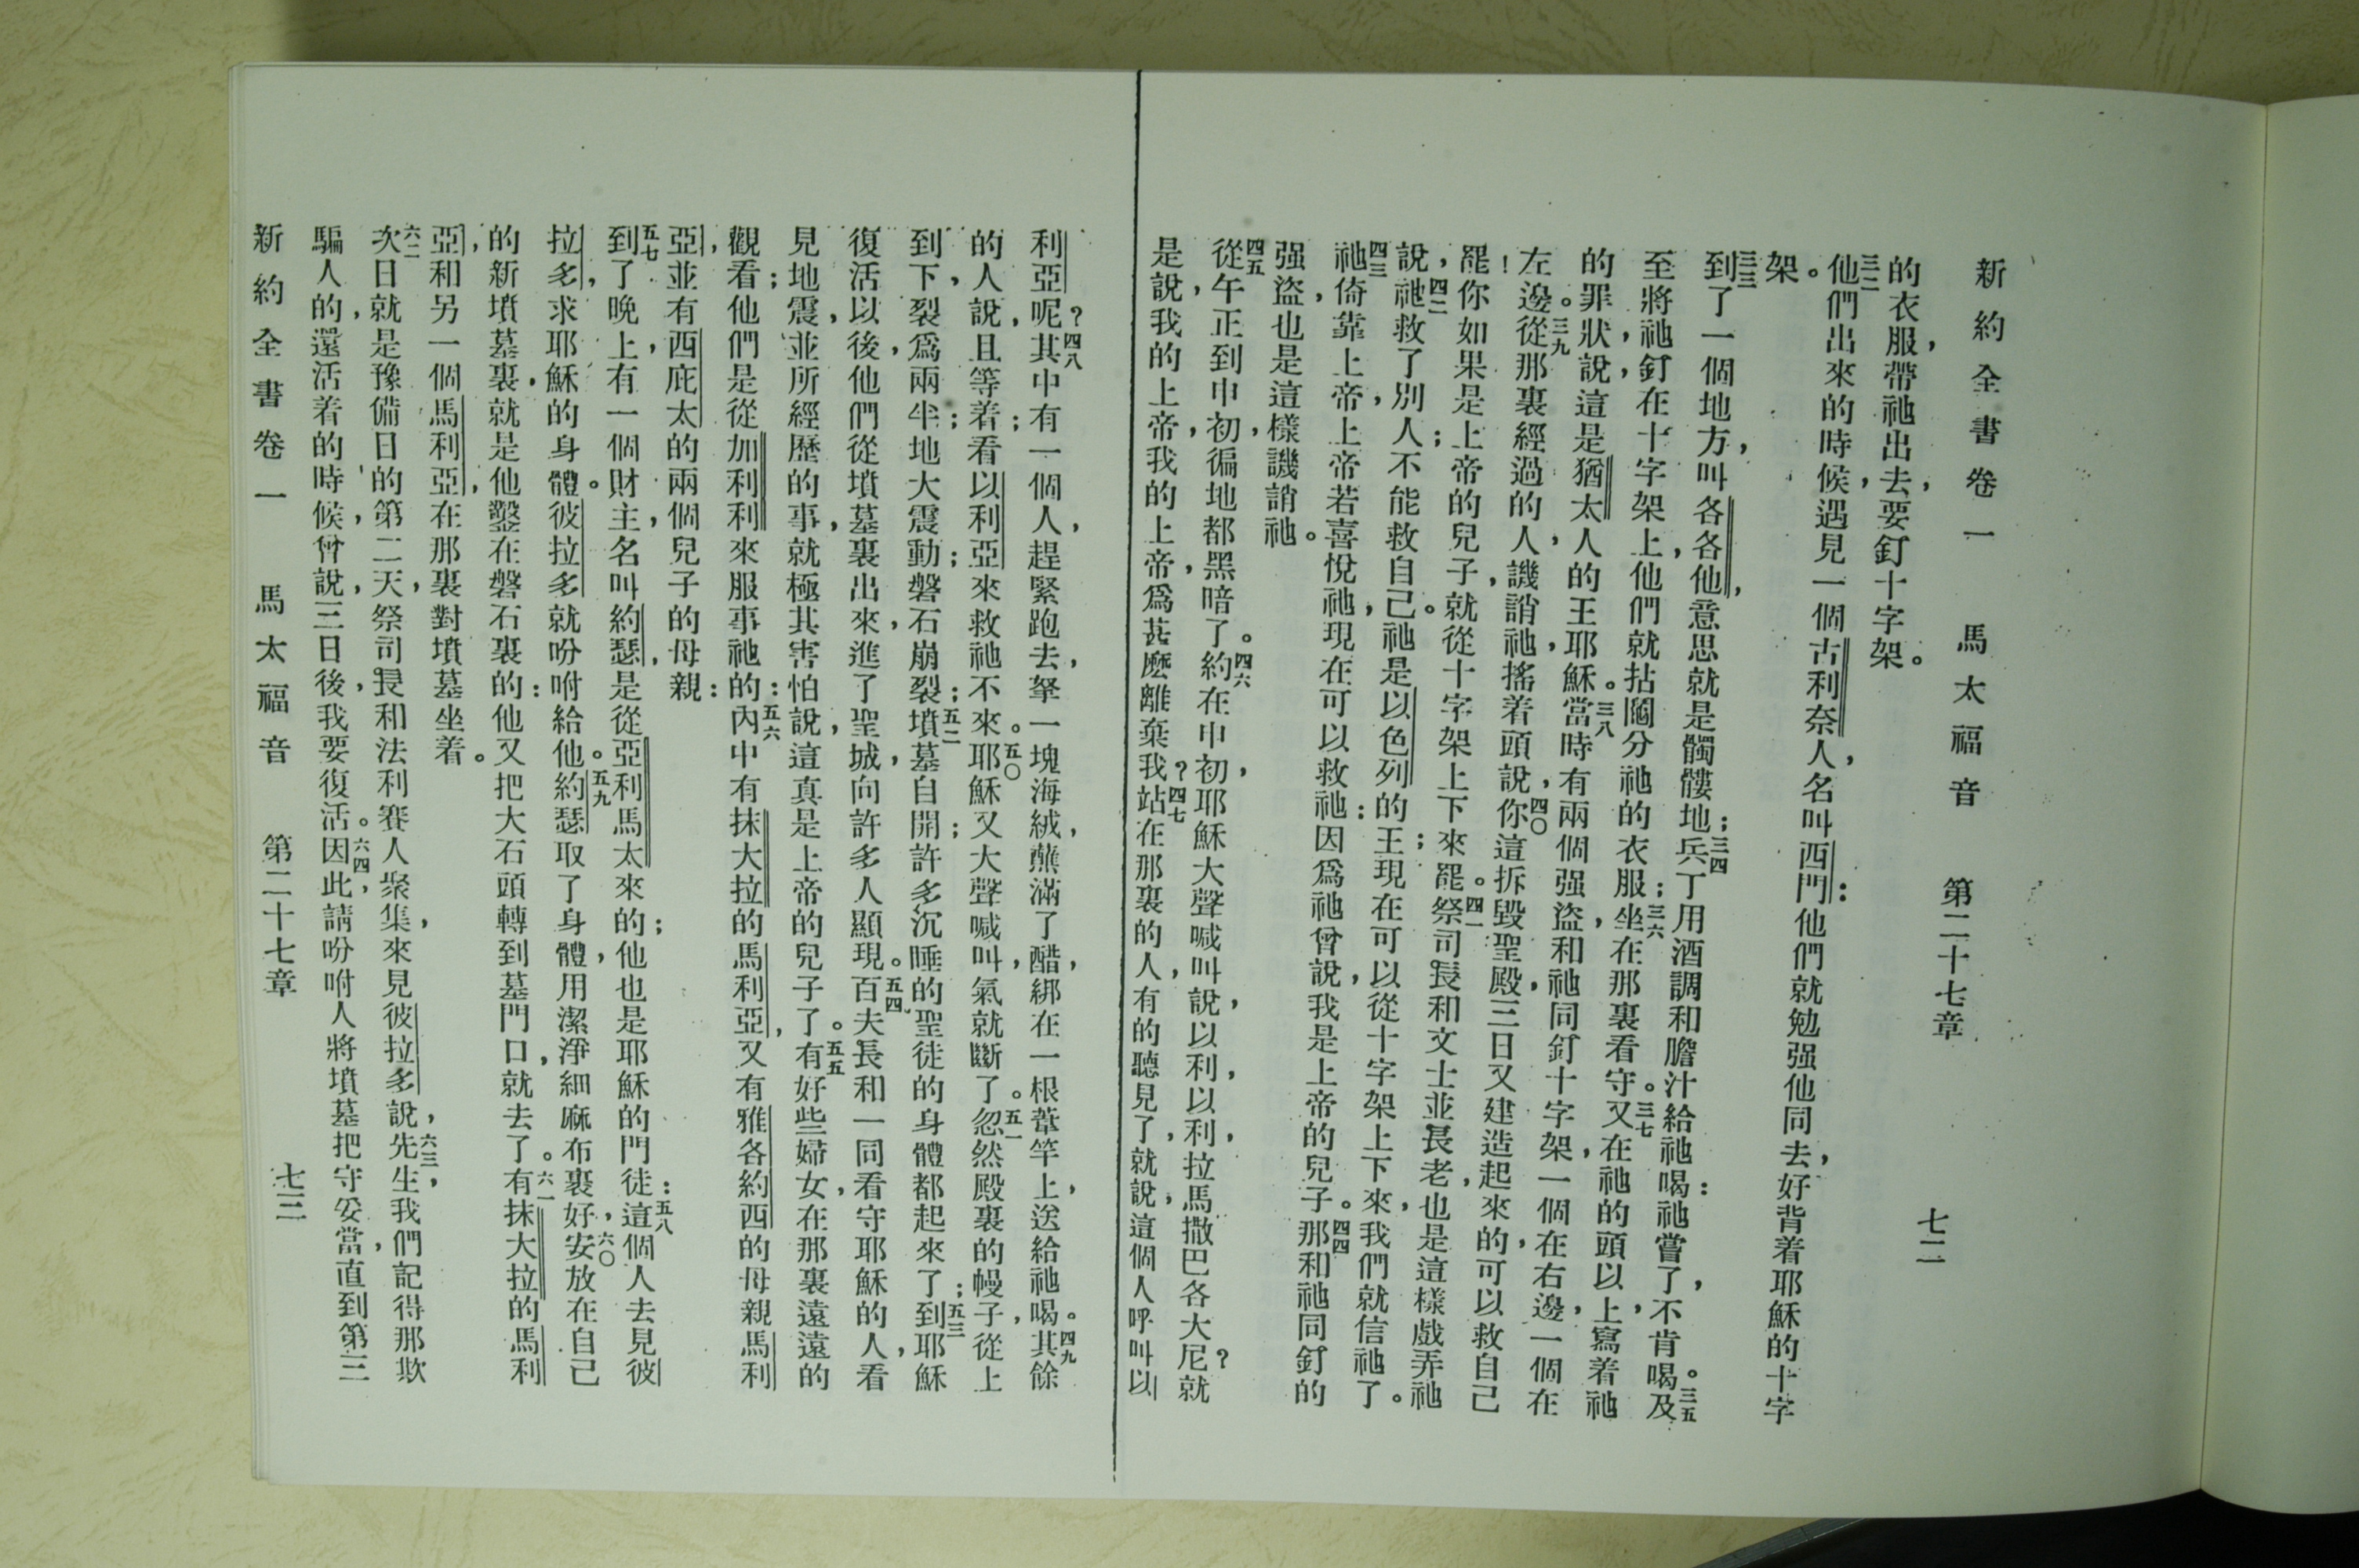 新約全書卷一 馬太福音 第二十七章 七二
的衣服，帶祂出去，要釘十字架。
三二他們出來的時候，遇見一個古利奈人，名叫西門：他們就勉强他同去，好背着耶穌的十字
架。
三三到了一個地方，叫各各他，意思就是髑髏地；三四兵丁用酒調和膽汁給祂喝：祂嘗了，不肯喝。三五及
至將祂釘在十字架上，他們就拈鬮分祂的衣服；三六坐在那裏看守。三七又在祂的頭以上，寫着祂
的罪狀，說，這是猶太人的王耶穌。三八當時有兩個强盜，和祂同釘十字架，一個在右邊，一個在
左邊。三九從那裏經過的人，譏誚祂，搖着頭說，四〇你這拆毀聖殿，三日又建造起來的，可以救自己
罷！你如果是上帝的兒子，就從十字架上下來罷。四一祭司長和文士並長老，也是這樣戲弄祂
說，四二祂救了別人；不能救自己。祂是以色列的王；現在可以從十字架上下來，我們就信祂了。
四三祂倚靠上帝，上帝若喜悅祂，現在可以救祂：因爲祂曾說，我是上帝的兒子。四四那和祂同釘的
强盜，也是這樣譏誚祂。
四五從午正到申初，徧地都黑暗了。四六約在申初，耶穌大聲喊叫說，以利，以利，拉馬撒巴各大尼？就
是說，我的上帝，我的上帝，爲甚麽離棄我？四七站在那裏的人，有的聽見了，就說，這個人呼叫以
利亞呢？四八其中有一個人，趕緊跑去，拏一塊海絨，蘸滿了醋，綁在一根葦竿上，送給祂喝。四九其餘
的人說，且等着；看以利亞來救祂不來。五〇耶穌又大聲喊叫，氣就斷了。五一忽然殿裏的幔子，從上
到下，裂爲兩半；地大震動；磐石崩裂；五二墳墓自開；許多沉睡的聖徒的身體都起來了；五三到耶穌
復活以後，他們從墳墓裏出來，進了聖城，向許多人顯現。五四百夫長和一同看守耶穌的人，看
見地震，並所經歷的事，就極其害怕，說這真是上帝的兒子了。五五有好些婦女，在那裏遠遠的
觀看；他們是從加利利來服事祂的：五六內中有抹大拉的馬利亞，又有雅各約西的母親馬利
亞，並有西庇太的兩個兒子的母親：
五七到了晚上，有一個財主，名叫約瑟，是從亞利馬太來的；他也是耶穌的門徒：五八這個人去見彼
拉多，求耶穌的身體。彼拉多就吩咐給他。五九約瑟取了身體，用潔淨細麻布裹好，六〇安放在自己
的新墳墓裏，就是他鑿在磐石裏的：他又把大石頭轉到墓門口，就去了。六一有抹大拉的馬利
亞，和另一個馬利亞，在那裏對墳墓坐着。
六二次日就是豫備日的第二天，祭司長和法利賽人聚集，來見彼拉多，六三說，先生，我們記得那欺
騙人的，還活着的時候，曾說，三日後，我要復活。六四因此，請吩咐人將墳墓把守妥當，直到第三
新約全書卷一 馬太福音 第二十七章 七三